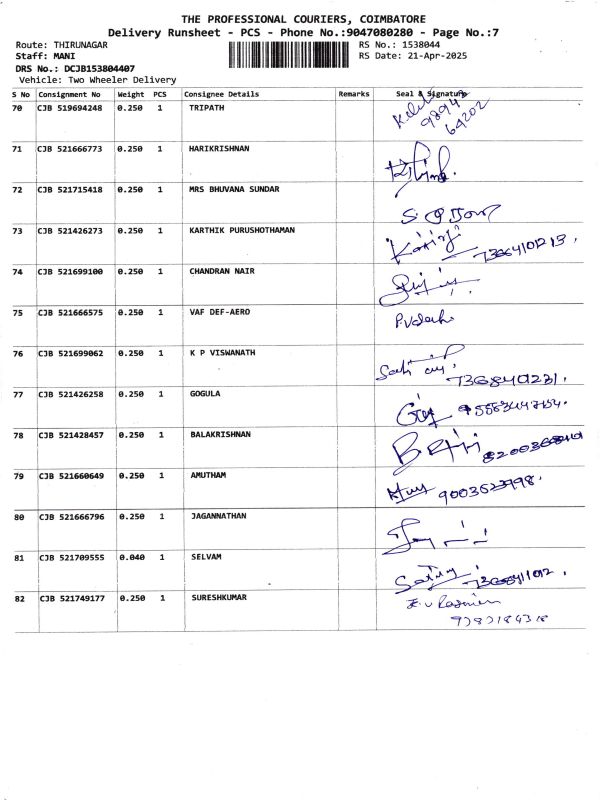 THE PROFESSIONAL COURIERS, COIMBATORE
Delivery Runsheet - PCS - Phone No.:9047080280 - Page No.:7
Route: THIRUNAGAR RS No.: 1538044
Staff: MANI RS Date: 21-Apr-2025
DRS No.: DCJB153804407
Vehicle: Two Wheeler Delivery
S No Consignment No Weight PCS Consignee Details Remarks Seal & Signature
70 CJB 519694248 0.250 1 TRIPATH 9894
64202
71 CJB 521666773 0.250 1 HARIKRISHNAN
72 CJB 521715418 0.250 1 MRS BHUVANA SUNDAR
73 CJB 521426273 0.250 1 KARTHIK PURUSHOTHAMAN
74 CJB 521699100 0.250 1 CHANDRAN NAIR
75 CJB 521666575 0.250 1 VAF DEF-AERO
76 CJB 521699062 0.250 1 K P VISWANATH 7368401231.
77 CJB 521426258 0.250 1 GOGULA
78 CJB 521428457 0.250 1 BALAKRISHNAN
79 CJB 521660649 0.250 1 AMUTHAM
80 CJB 521666796 0.250 1 JAGANNATHAN
81 CJB 521709555 0.040 1 SELVAM
82 CJB 521749177 0.250 1 SURESHKUMAR